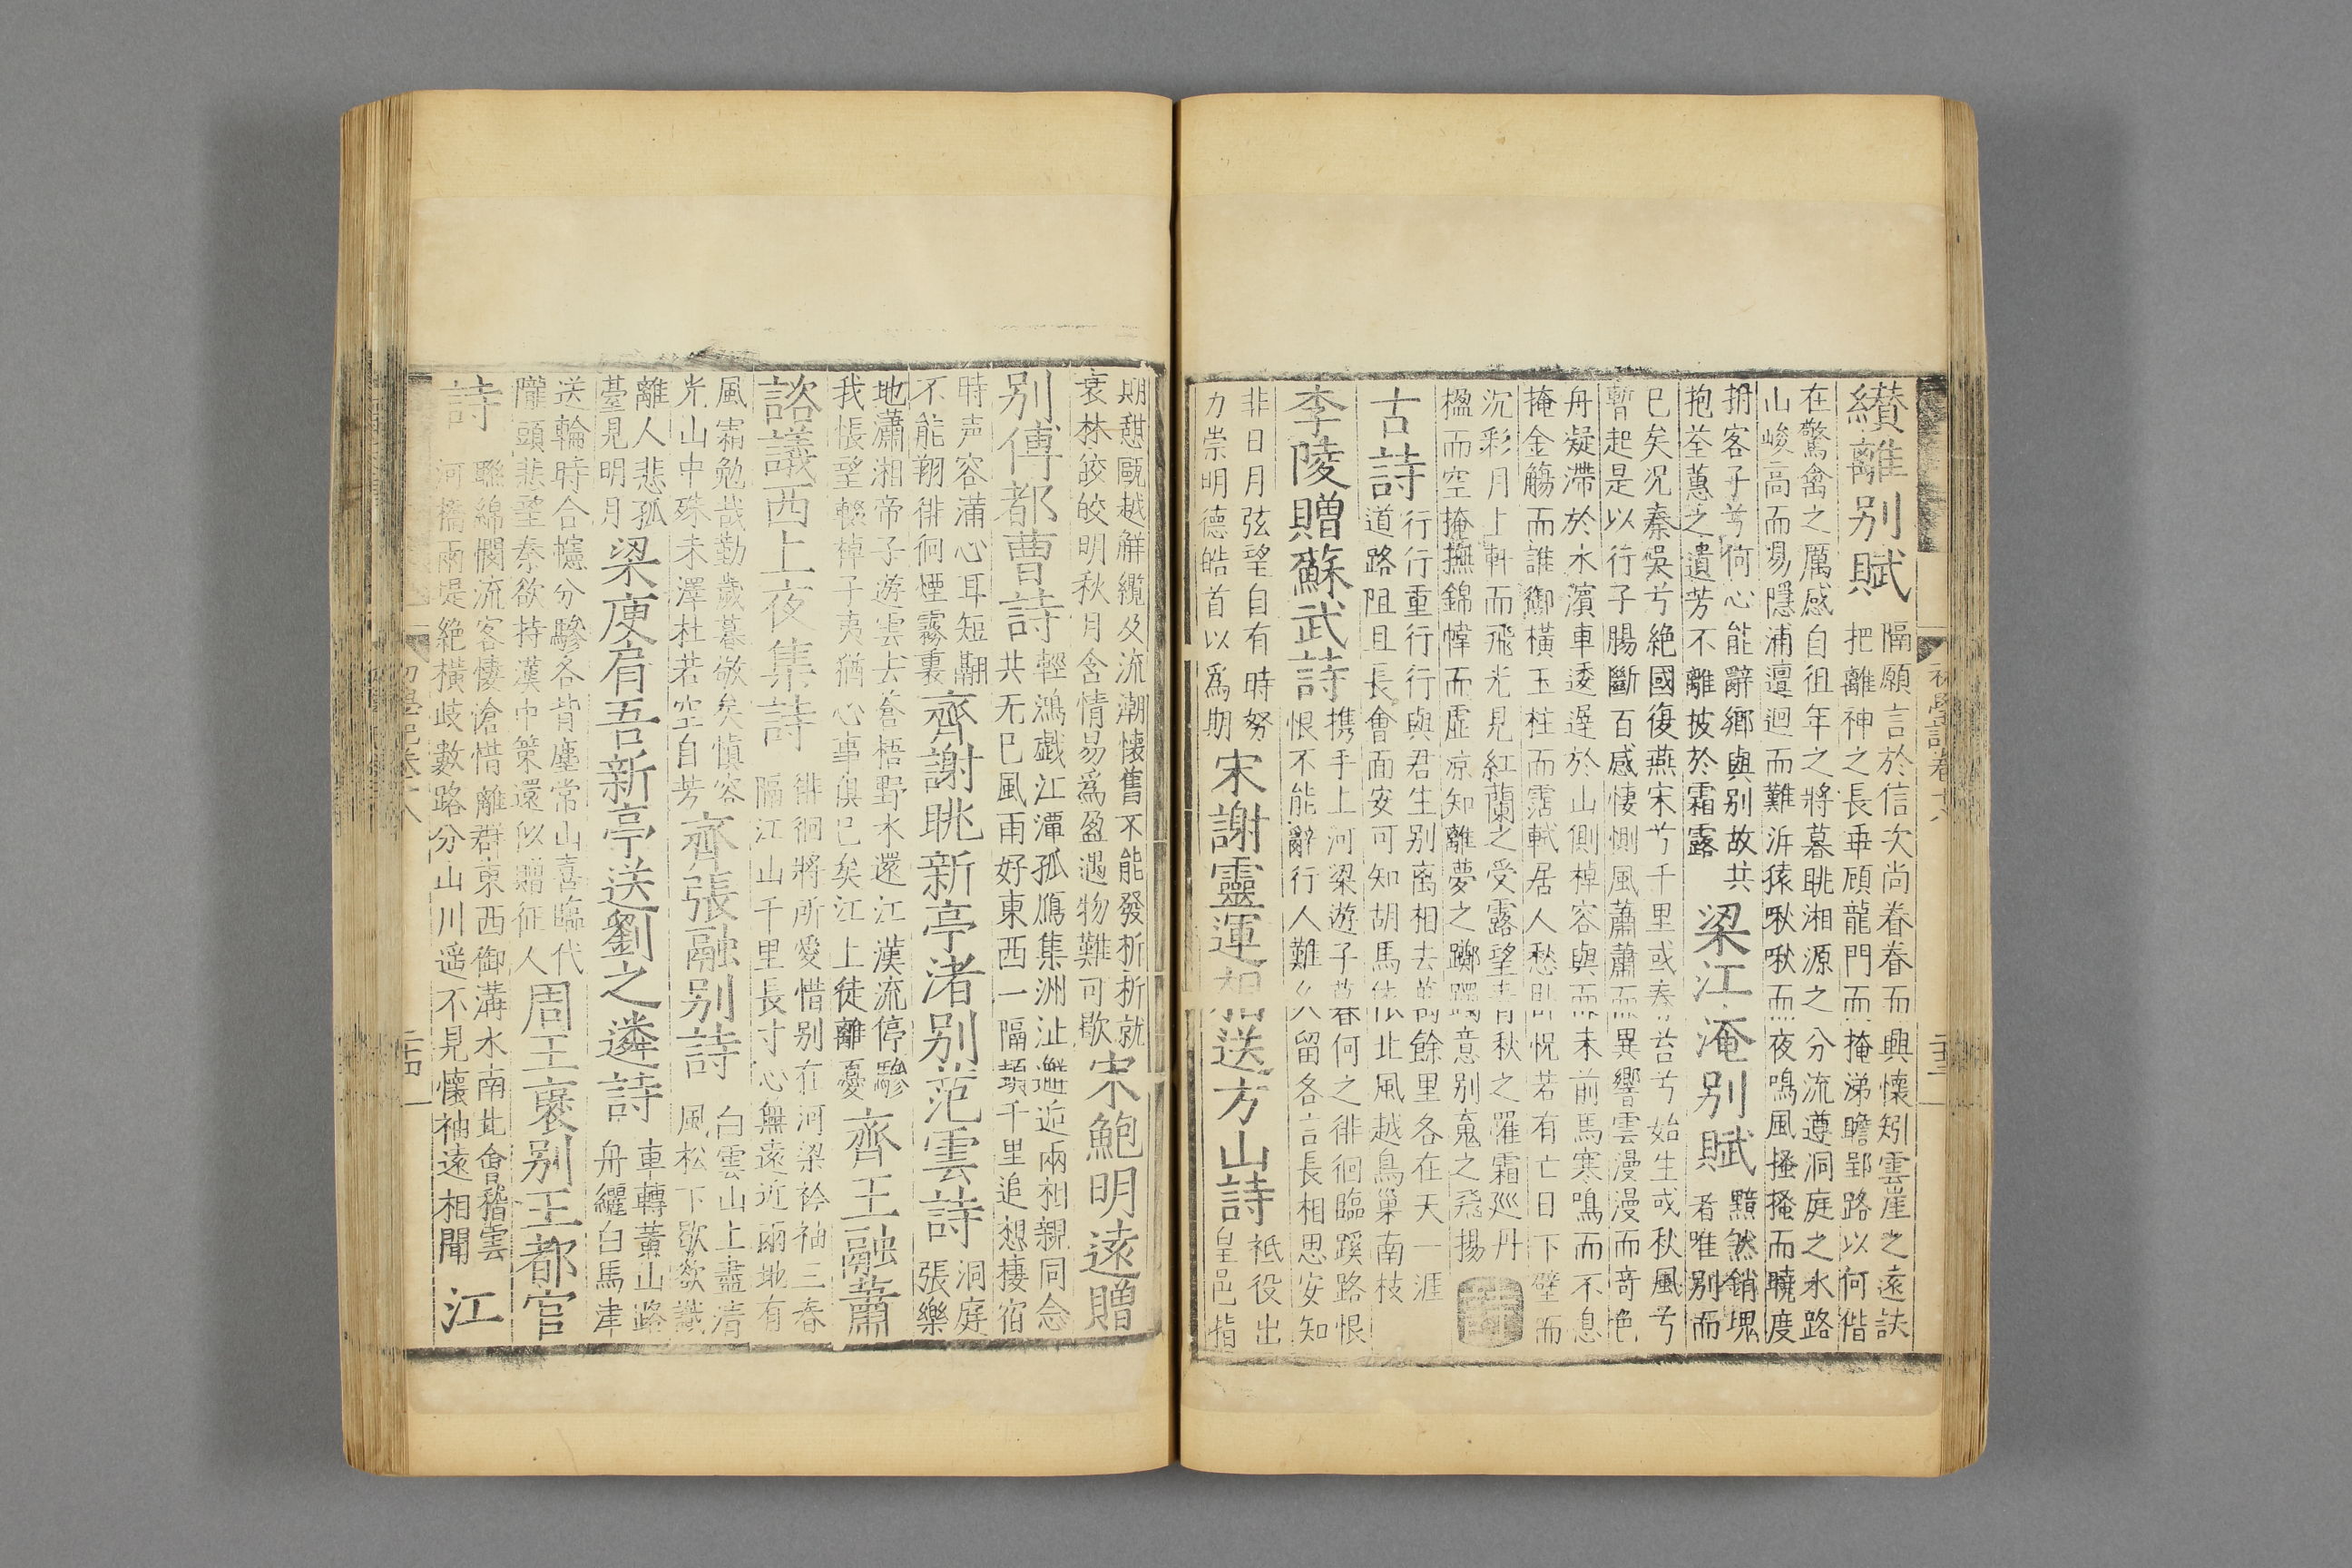 纉離别賦
隔願言於信次尚眷眷而興懷矧雲崖之遠訣
把離神之長乖頋龍門而掩涕瞻郢路以何偕
在驚禽之厲感自徂年之將暮眺湘源之分流遵洞庭之水路
山峻高而易隱浦邅迴而難泝猿啾啾而夜鳴風搔搔而曉度
捐客子兮何心能辭鄉與别故共
抱荃蕙之遺芳不離披於霜露
梁江淹别賦
黯然銷塊
者唯别而
巳矣况秦吳兮絶國復燕宋兮千里或春苔兮始生或秋風兮
暫起是以行子腸斷百感悽惻風蕭蕭而異響雲漫漫而竒色
舟凝滯於水濱車逶遲於山側棹容與而未前馬寒鳴而不息
掩金觴而誰御橫玉柱而霑軾居人愁卧怳若有亡日下壁而
沉彩月上軒而飛光見紅蘭之受露望青秋之罹霜廵丹
楹而空掩撫錦幃而虛凉知離夢之躑躅意别䰟之飛揚
古詩
行行重行行與君生别离相去萬餘里各在天一涯
道路阻且長會面安可知胡馬依北風越鳥巢南枝
李陵贈蘇武詩
携手上河梁遊子暮何之徘徊臨蹊路恨
恨不能辭行人難久留各言長相思安知
非日月弦望自有時努
力崇明德皓首以爲期
宋謝靈運相送方山詩
祗役出
皇邑指
期憇甌越觧纜及流潮懷舊不能發析析就
衰林皎皎明秋月含情易爲盈遇物難可歇
宋鮑明遠贈
别傅都曹詩
輕鴻戯江潭孤鴈集洲沚邂逅兩相親同念
共无巳風雨好東西一隔頓千里追想棲宿
時声容蒲心耳短翮
不能翔徘徊煙霧裏
齊謝眺新亭渚别范雲詩
洞庭
張樂
地瀟湘帝子遊雲去蒼梧野水還江漢流停驂
我悵望輟棹子夷猶心事俱巳矣江上徒離憂
齊王融蕭
諮議西上夜集詩
徘徊將所愛惜别在河梁衿袖三春
隔江山千里長寸心無遠近兩地有
風霜勉哉勤歲暮敬矣慎容
光山中殊未澤杜若空自芳
齊張融别詩
白雲山上盡清
風松下歇欲識
離人悲孤
臺見明月
梁庾肩吾新亭送劉之遴詩
車轉黄山路
舟纚白馬津
送輪時合幰分驂各背塵常山喜臨代
隴頭悲望秦欲持漢中策還似贈征人
周王褒别王都官
詩
聯綿憫流客悽滄惜離群東西御溝水南北會稽雲
河橋兩堤絶橫歧數路分山川遥不見懷袖遠相聞
江